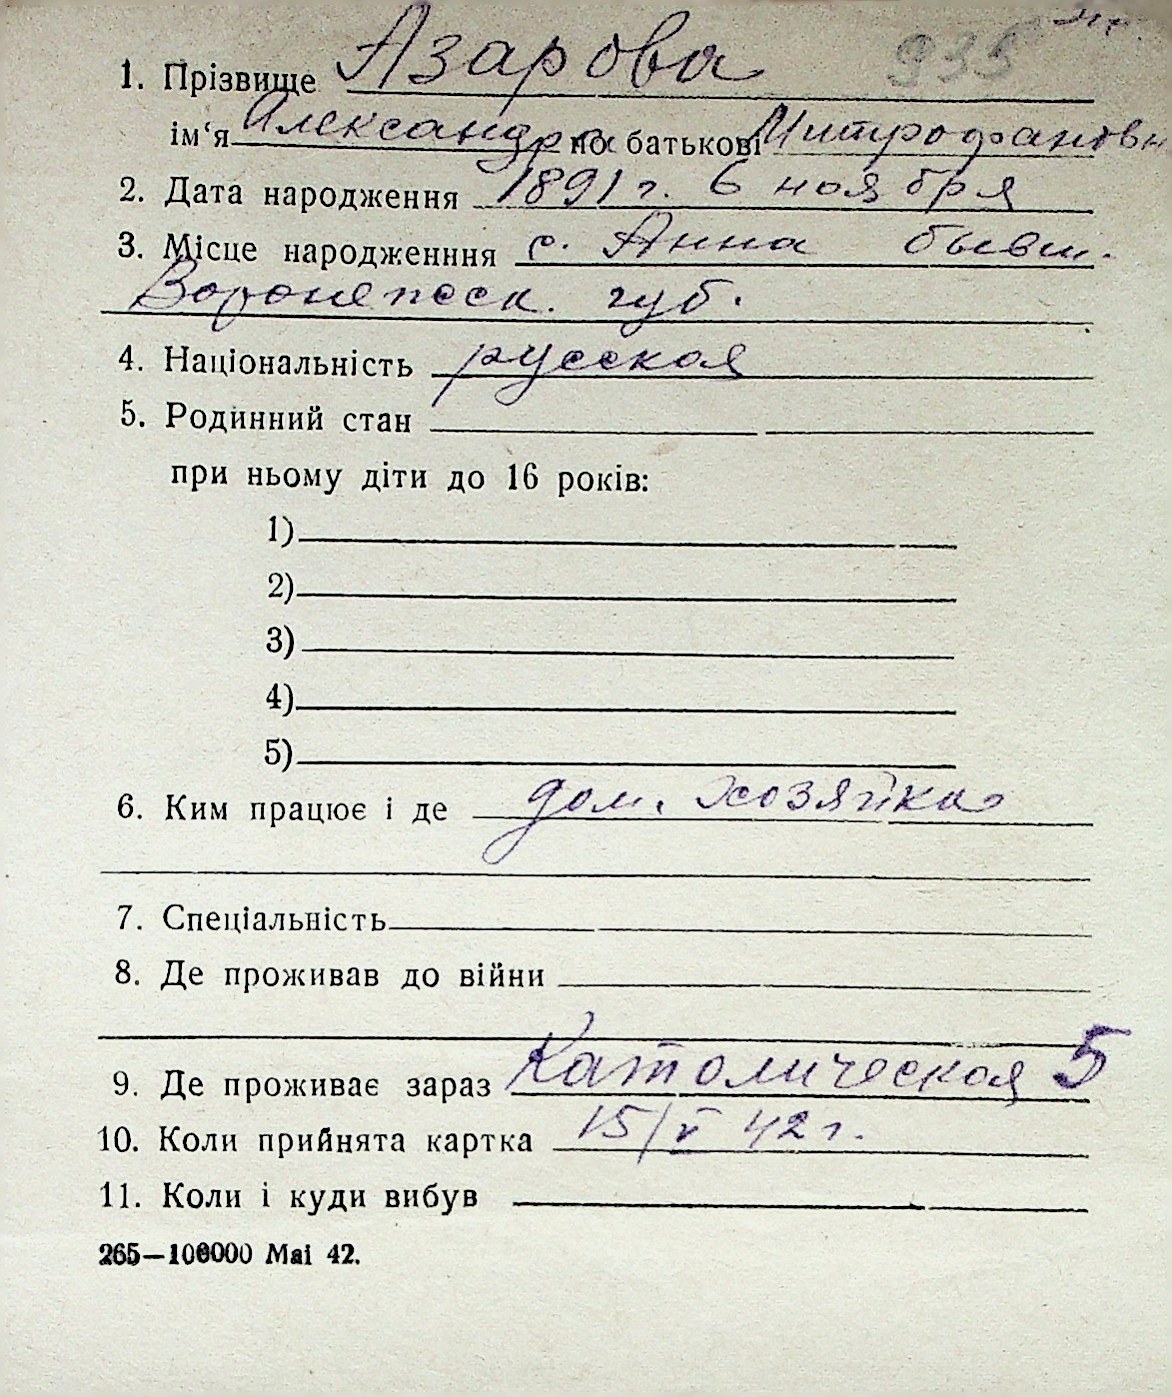 935
1. Прізвище Азарова
ім‘я Александра по батькові Митрофановн
2. Дата народження 1891 г. 6 ноября
3. Місце народженння с. Анна бывш.
Воронежск. губ.
4. Національність русская
5. Родинний стан
при ньому діти до 16 років:
1)
2)
3)
4)
5)
6. Ким працює і де дом. хозяйка
7. Спеціальність
8. Де проживав до війни
9. Де проживає зараз Католическая 5
10. Коли прийнята картка 15/V 42 г.
11. Коли і куди вибув
265—100000 Маі 42.